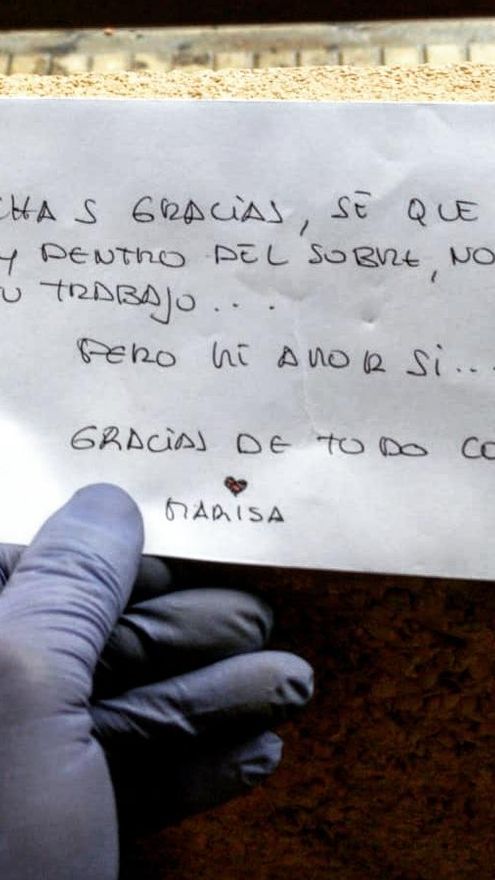 CHAS GRACIAS, SÉ QUE
Y DENTRO DEL SOBRE, NO
U TRABAJO...
PERO MI AMOR SI...
GRACIAS DE TODO CO
MARISA